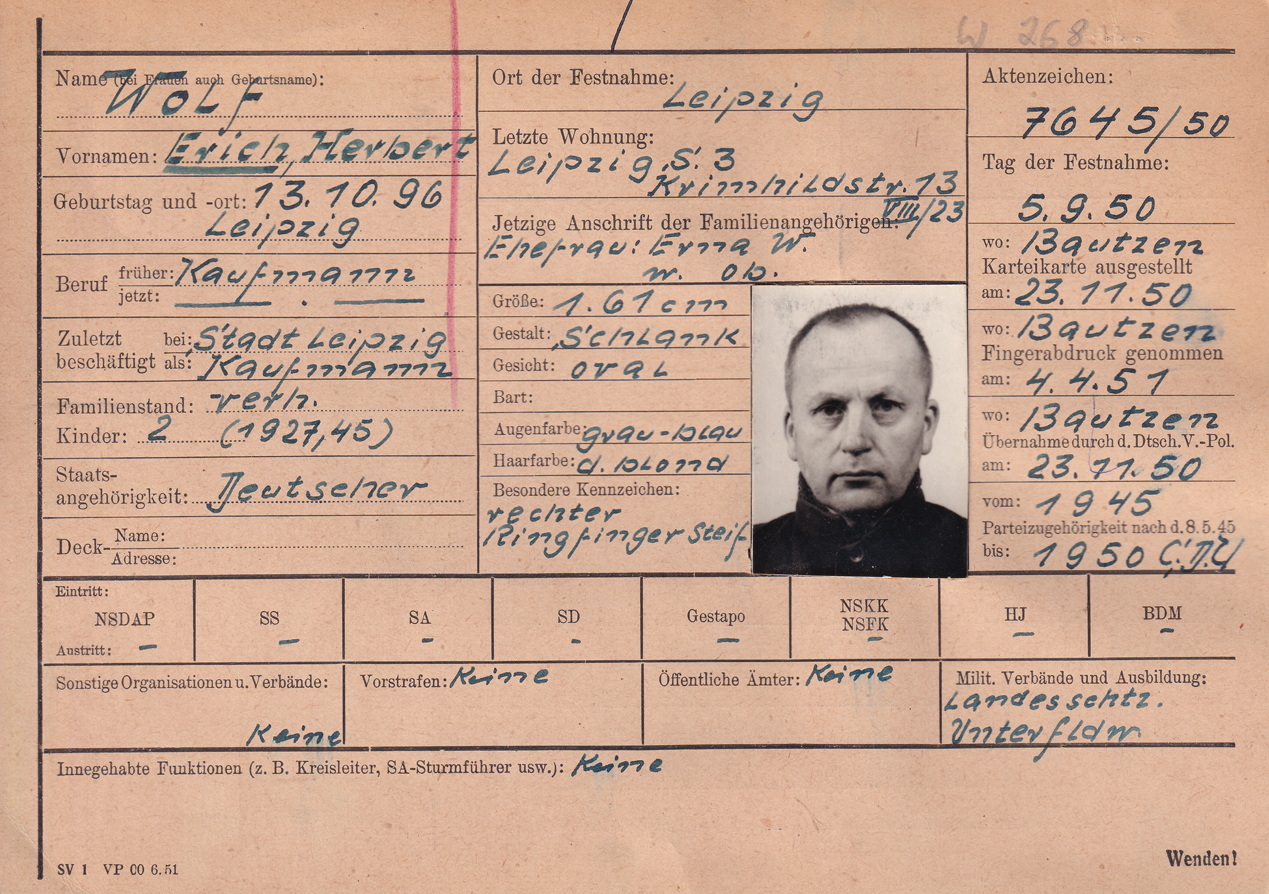 W 268
Name (bei Frauen auch Geburtsname):
WOLF
Vornamen: Erich, Herbert
Geburtstag und -ort: 13. 10. 96
Leipzig
Beruf früher: Kaufmann
jetzt: — . —
Zuletzt beschäftigt bei: Stadt Leipzig
als: Kaufmann
Familienstand: verh.
Kinder: 2 (1927,45)
Staats-
angehörigkeit: Deutscher
Deck- Name:
Adresse:
Ort der Festnahme:
Leipzig
Letzte Wohnung:
Leipzig, S. 3
Krimhildstr. 13
VIII/23
Jetzige Anschrift der Familienangehörigen:
Ehefrau: Erna W.
w. ob.
Größe: 1.61 cm
Gestalt: Schlank
Gesicht: oval
Bart:
Augenfarbe: grau-blau
Haarfarbe: d. blond
Besondere Kennzeichen:
rechter
Ringfinger Steif
Aktenzeichen:
7645/50
Tag der Festnahme:
5. 9. 50
wo: Bautzen
Karteikarte ausgestellt
am: 23. 11. 50
wo: Bautzen
Fingerabdruck genommen
am: 4. 4. 51
wo: Bautzen
Übernahme durch d. Dtsch. V.-Pol.
am: 23. 11. 50
vom: 1945
Parteizugehörigkeit nach d. 8.5.45
bis: 1950 C.D.U
Eintritt:
NSDAP SS SA SD Gestapo NSKK NSFK HJ BDM
Austritt: — — — — — — — —
Sonstige Organisationen u. Verbände:
Keine
Vorstrafen: Keine
Öffentliche Ämter: Keine
Milit. Verbände und Ausbildung:
Landesschtz.
Unterfldw.
Innegehabte Funktionen (z. B. Kreisleiter, SA-Sturmführer usw.): Keine
SV 1 VP 00 6.51
Wenden!